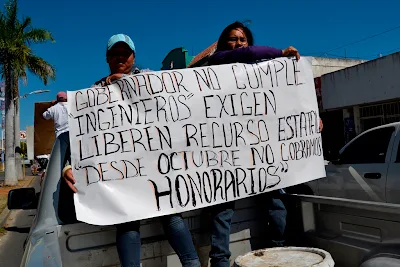 GOBERNADOR NO CUMPLE
"INGENIEROS" EXIGEN
LIBEREN RECURSO ESTATAL
"DESDE OCTUBRE NO COBRAMOS
HONORARIOS"